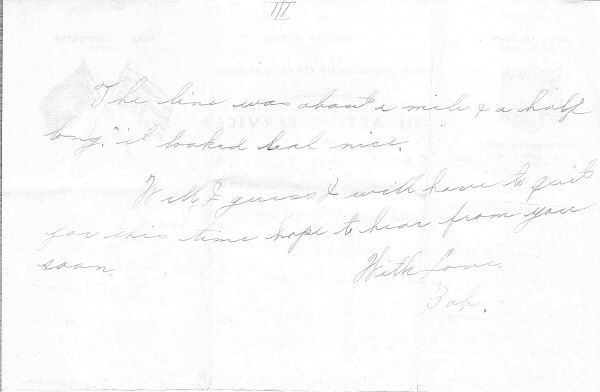 III
The line was about a mile & a half
long. it looked real nice.
Well I guess I will have to quit
for this time hope to hear from you
soon.
With Love.
Bob.